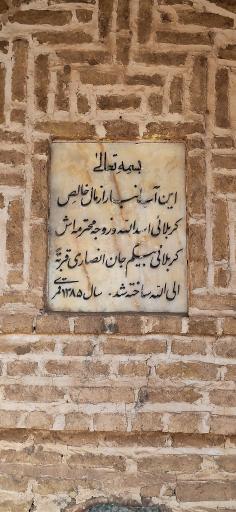 بسمه تعالی
این آب انبار از مال خالص
کربلائی اسدالله و زوجه محترمه اش
کربلائی بیگم جان انصاری قربة
الی الله ساخته شد. سال ۱۳۸۵ قمری